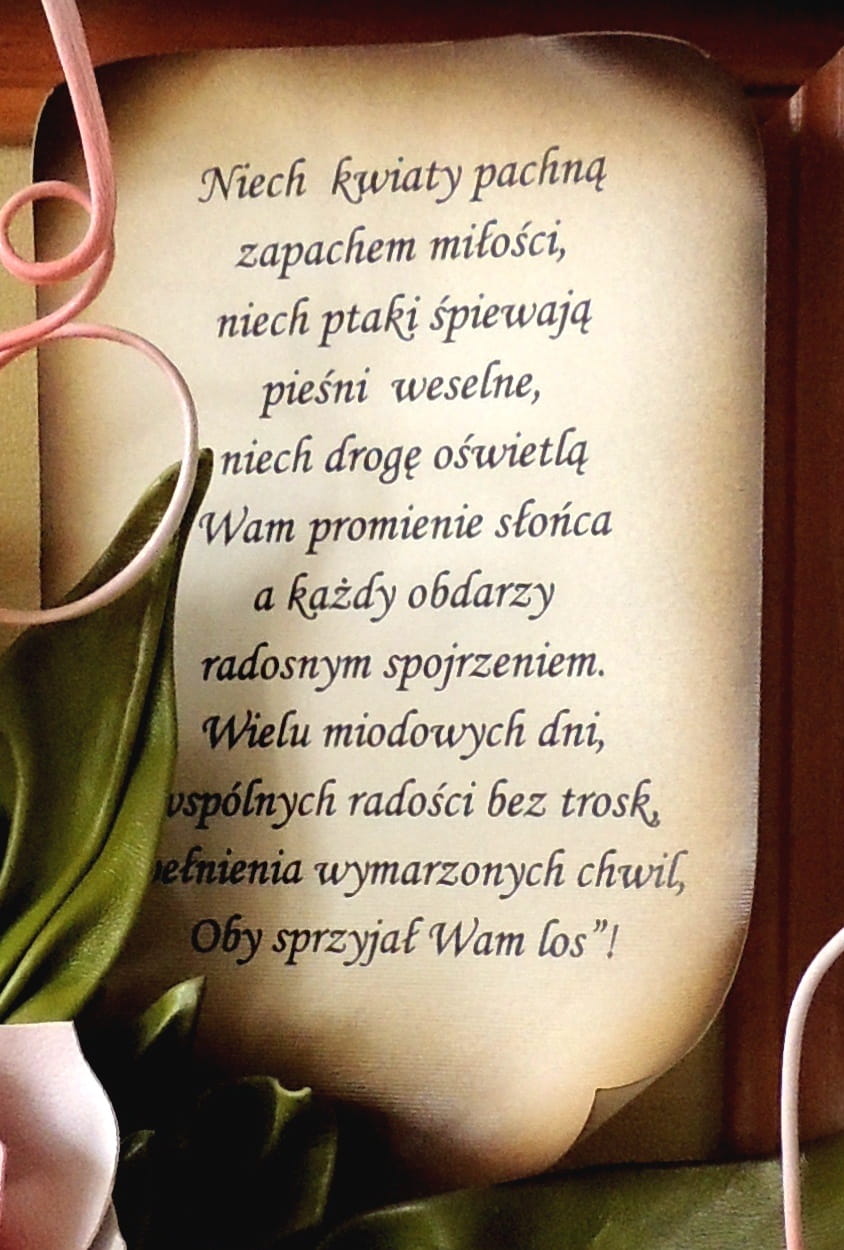 Niech kwiaty pachną
zapachem miłości,
niech ptaki śpiewają
pieśni weselne,
niech drogę oświetlą
Wam promienie słońca
a każdy obdarzy
radosnym spojrzeniem.
Wielu miodowych dni,
wspólnych radości bez trosk,
wymarzonych chwil,
Oby sprzyjał Wam los”!